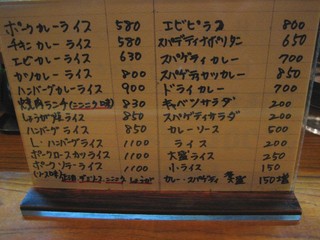 ポークカレーライス 580
チキンカレーライス 580
エビカレーライス 630
カツカレーライス 800
ハンバーグカレーライス 900
焼肉ランチ(ニンニク味) 830
しょうが焼ライス 850
ハンバーグライス 850
L・ハンバーグライス 1100
ポークロースカツライス 1100
ポークソテーライス 1100
ニンニク しょうが
エビピラフ 800
スパゲティナポリタン 650
スパゲティカレー 700
スパゲティカツカレー 850
ドライカレー 700
キャベツサラダ 200
スパゲティサラダ 200
カレーソース 500
ライス 200
大盛ライス 250
小ライス 150
カレー・スパゲティ 150増